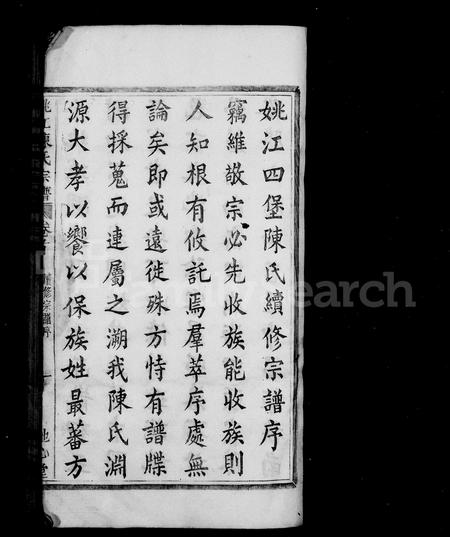 姚江四堡陳氏續修宗譜序
竊維敬宗必先收族能收族則
人知根有攸託焉羣萃序處無
論矣即或遠徙殊方恃有譜牒
得採蒐而連屬之溯我陳氏淵
源大孝以饗以保族姓最蕃方
姚江陳氏宗譜
續修宗譜序
一
FamilySearch